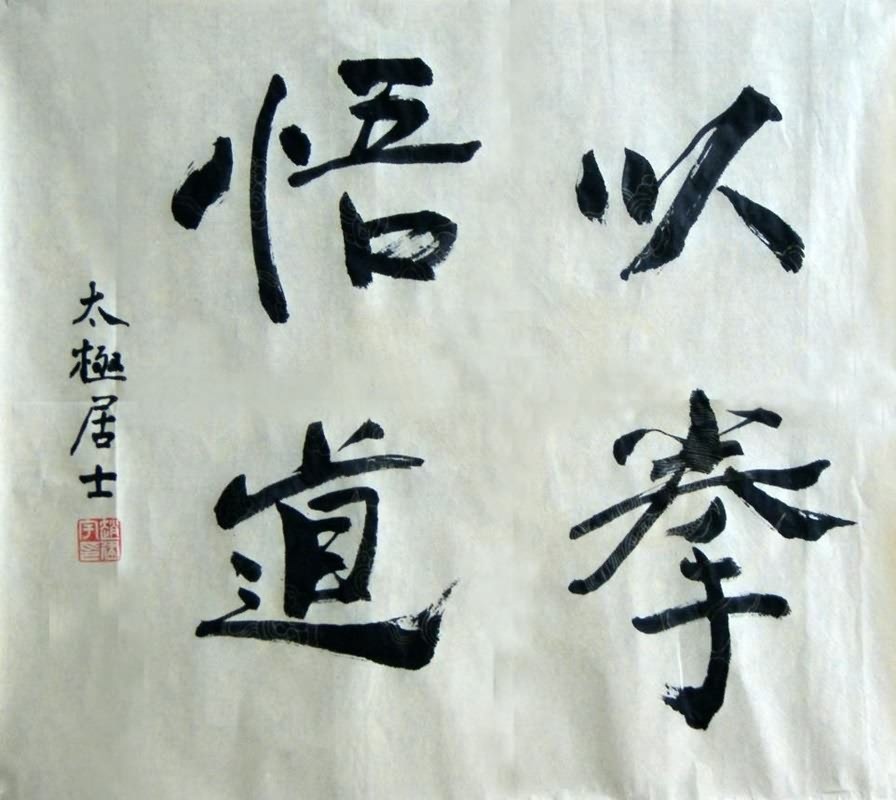 以拳
悟道
太極居士